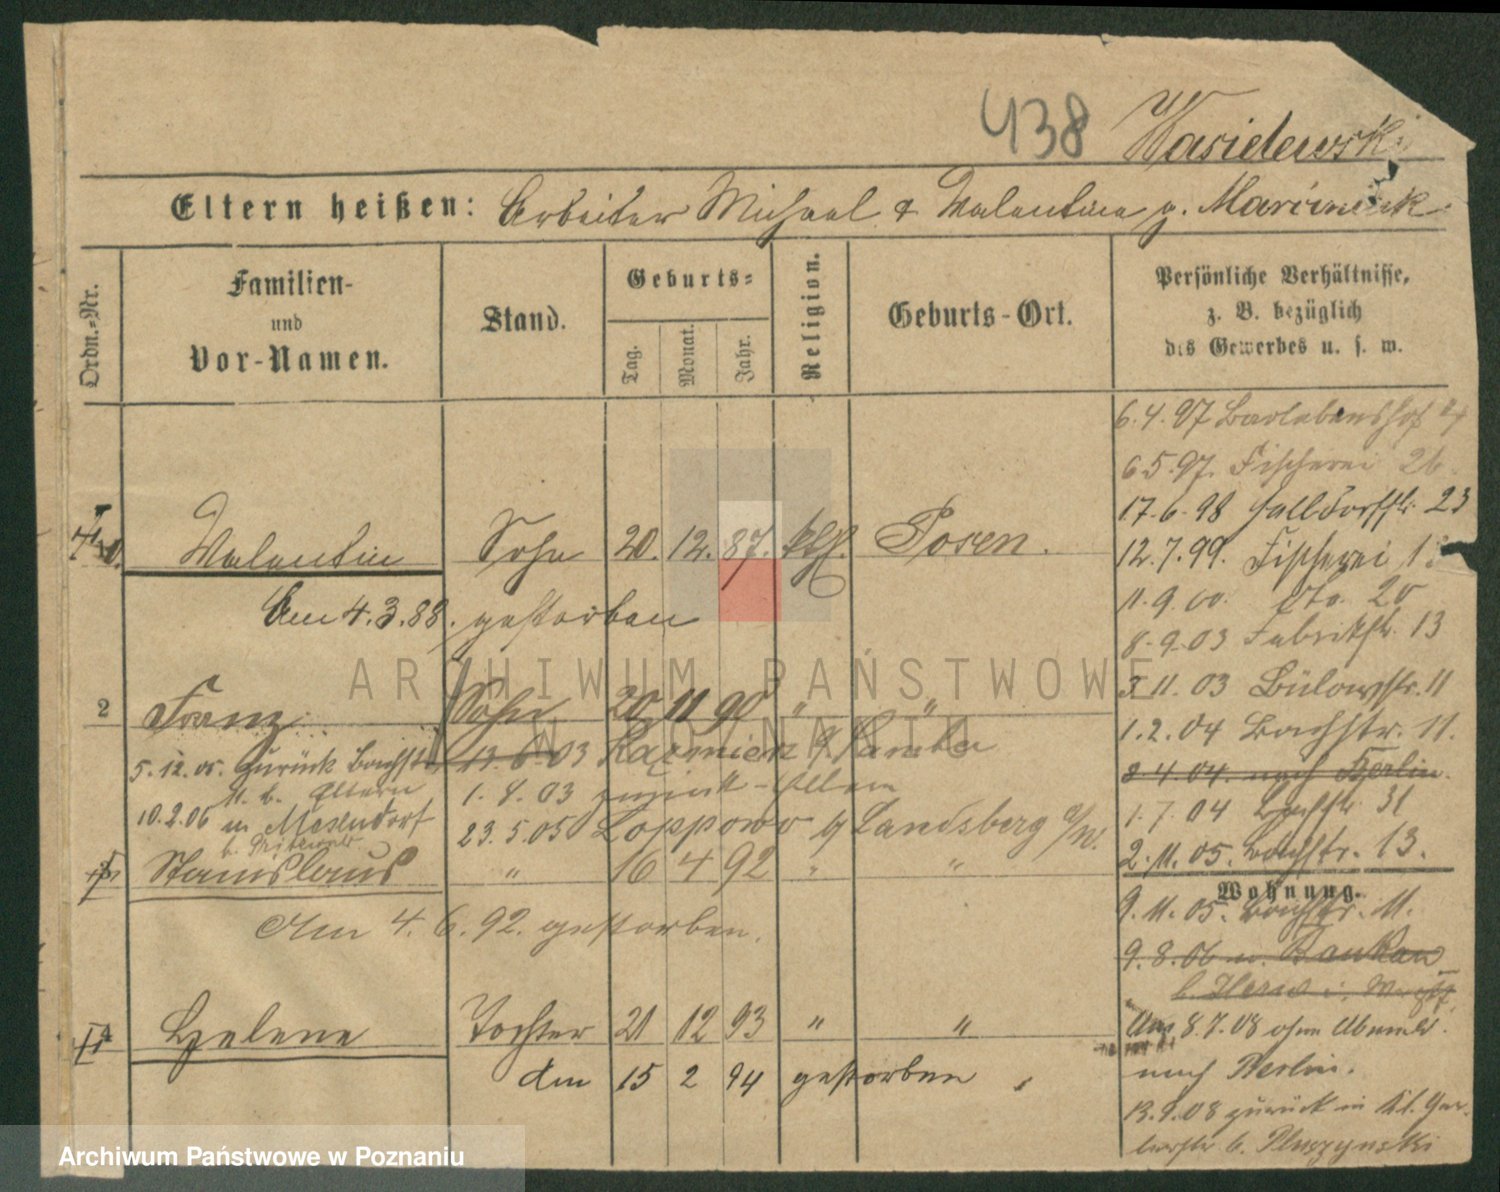 438 Wasielewski
Eltern heißen: Arbeiter Michael & Valentina g. Marciniak
Ordn.-Nr.
Familien-
und
Vor-Namen.
Stand.
Geburts-
Tag.
Monat.
Jahr.
Religion.
Geburts-Ort.
Persönliche Verhältnisse,
z. B. bezüglich
des Gewerbes u. s. w.
Valentin Sohn 20. 12. 87. kth. Posen.
Am 4.3.88. gestorben
2 Franz Sohn 20 11 90 " "
5.12.05. zurück Bachstr.
11. b. Eltern
10.2.06 n Maxendorf
11.6.03 Kazmierz
1.8.03 zurück - Eltern
23.5.05 Loppowo Landsberg a/W.
Stanislaus " 16 4 92 " "
Am 4. 6. 92. gestorben.
4 Helene Tochter 21 12 93 " "
den 15 2 94 gestorben
6.4.97 Bartlebenshof
6.5.97. Fischerei 26.
17.6.98 Halldorfstr. 23
12.7.99. Fischerei
11.9.00. dto. 20
8.9.03 Fabrikstr. 13
3 11. 03 Bülowstr. 11
1.2.04 Bachstr. 11.
2.4.04. nach Berlin.
1.7.04 Bachstr. 31
2.11.05. Bachstr. 13.
Wohnung.
9.11.05. Bachstr. 11.
9.8.06 n.
Aug 8.7.08 ohne Abmeld.
nach Berlin.
13.9.08 zurück in Kl. Ger-
berstr b. Pluszynski
ARCHIWUM PAŃSTWOWE
W POZNANIU
Archiwum Państwowe w Poznaniu